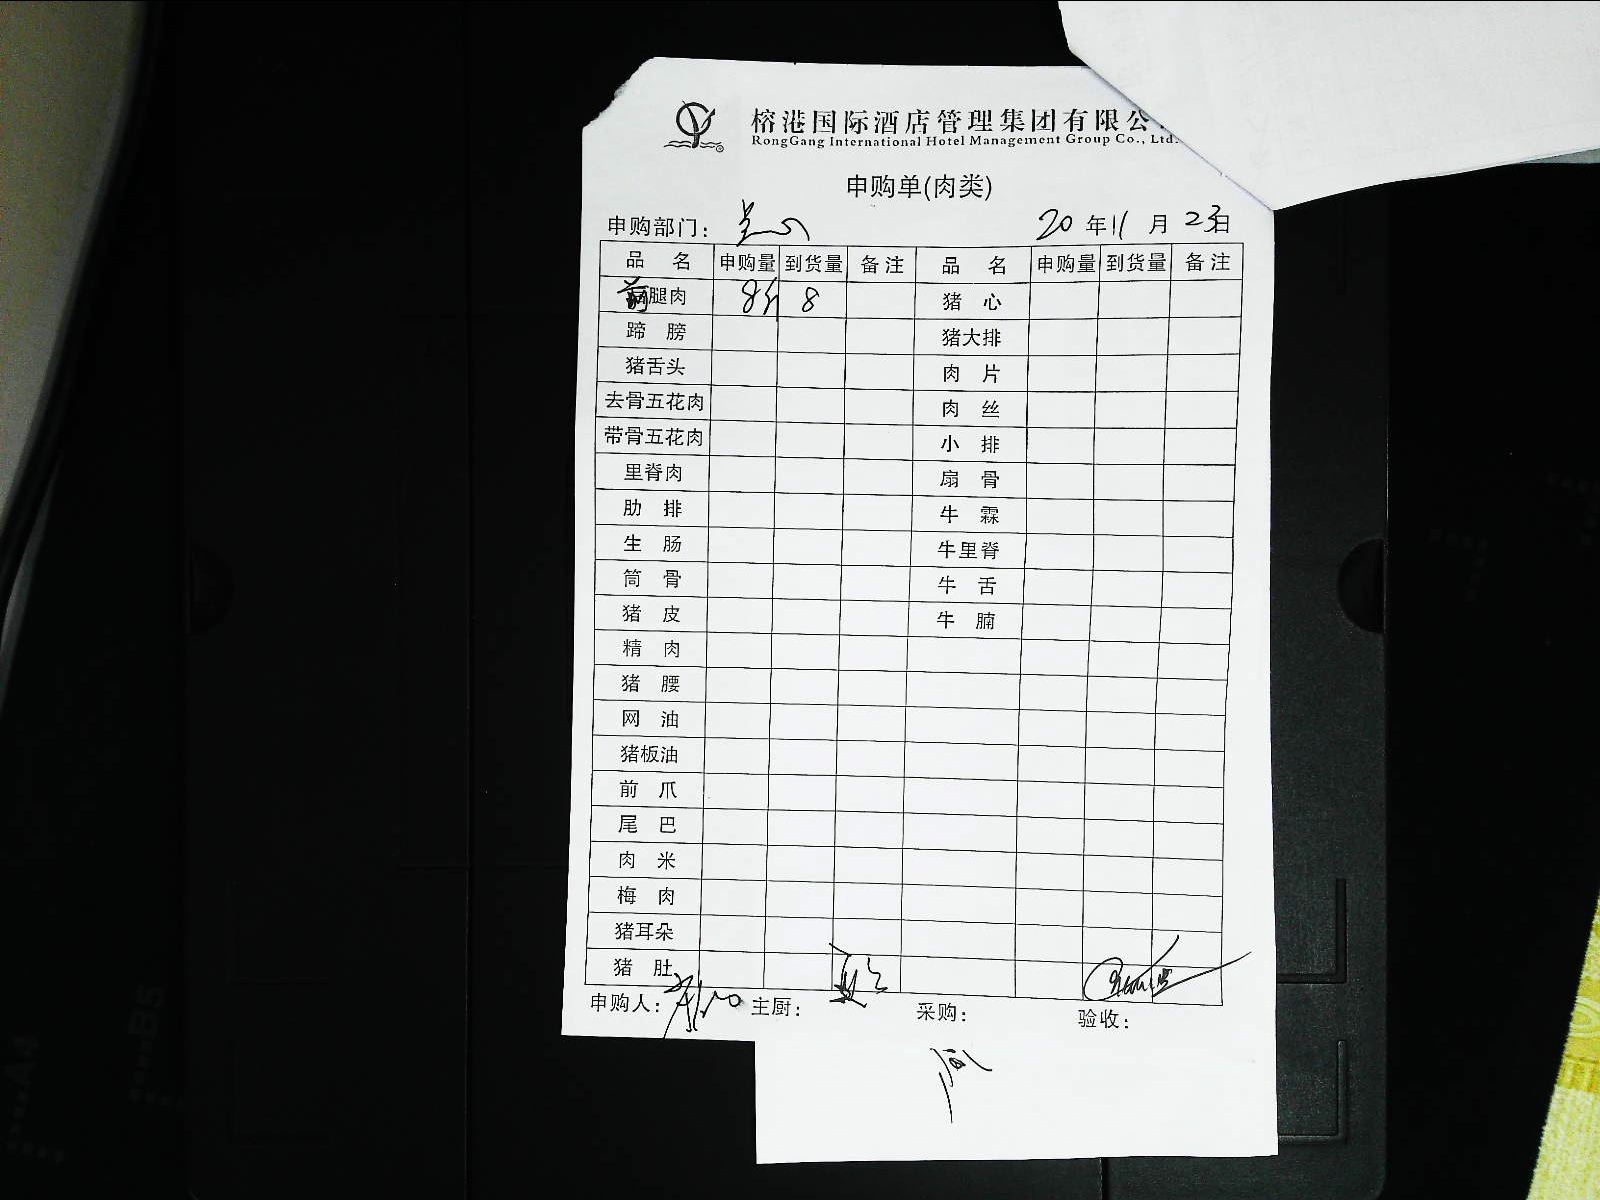 榕港国际酒店管理集团有限公
RongGang International Hotel Management Group Co., Ltd.
申购单(肉类)
申购部门: 20 年 11 月 23 日
品 名 申购量 到货量 备注 品 名 申购量 到货量 备注
前腿肉 8斤 8 猪 心
蹄 膀 猪大排
猪舌头 肉 片
去骨五花肉 肉 丝
带骨五花肉 小 排
里脊肉 扇 骨
肋 排 牛 霖
生 肠 牛里脊
筒 骨 牛 舌
猪 皮 牛 腩
精 肉
猪 腰
网 油
猪板油
前 爪
尾 巴
肉 米
梅 肉
猪耳朵
猪 肚
申购人: 主厨: 采购: 验收: